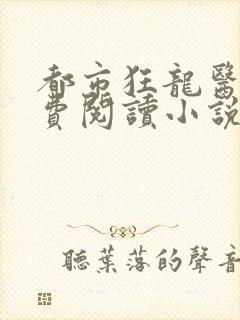 都市狂龍醫
費閱讀小說
聽葉落的聲音